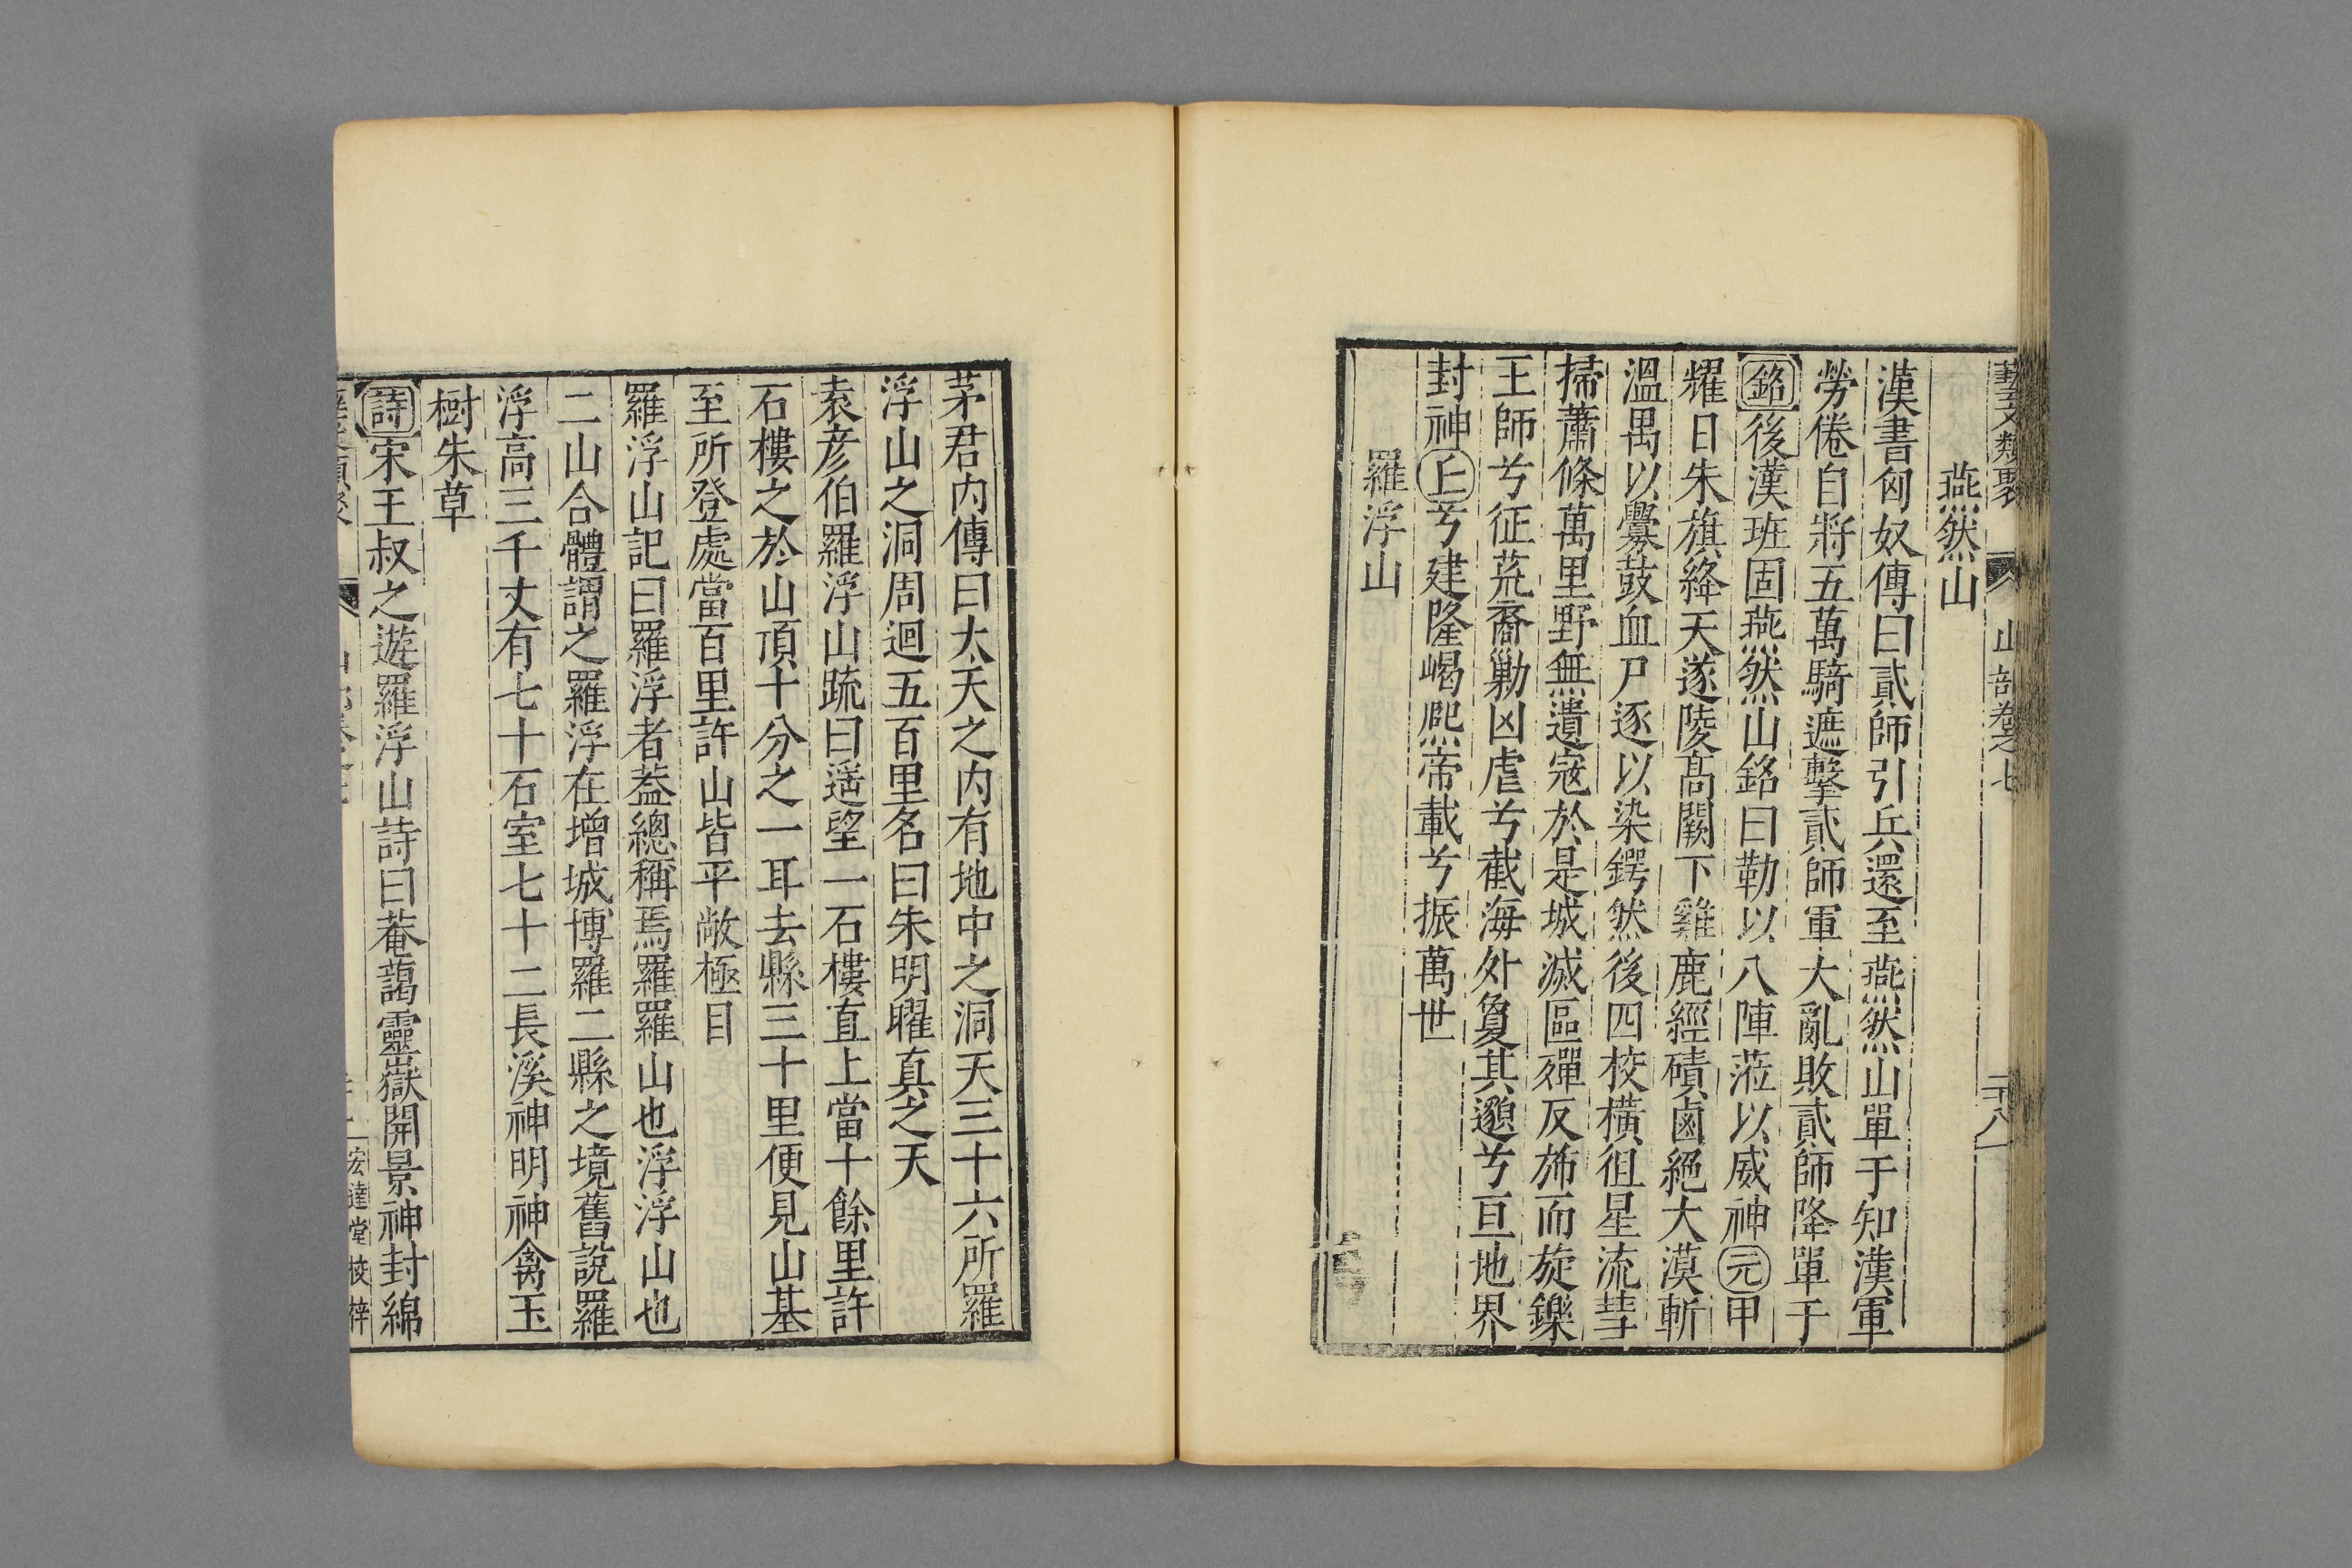 藝文類聚 山部卷之七 二十八
燕然山
漢書匈奴傳曰貳師引兵還至燕然山單于知漢軍
勞倦自將五萬騎遮擊貳師軍大亂敗貳師降單于
銘後漢班固燕然山銘曰勒以八陣蒞以威神元甲
耀日朱旗絳天遂陵髙闕下雞鹿經磧鹵絕大漠斬
溫禺以釁鼓血尸逐以染鍔然後四校橫徂星流彗
掃蕭條萬里野無遺寇於是域滅區殫反斾而旋鑠
王師兮征荒裔勦凶虐兮截海外敻其邈兮亘地界
封神丘兮建隆嵑熈帝載兮振萬世
羅浮山
茅君内傳曰太天之内有地中之洞天三十六所羅
浮山之洞周迴五百里名曰朱明曜真之天
袁彦伯羅浮山疏曰遥望一石樓直上當十餘里許
石樓之於山頂十分之一耳去縣三十里便見山基
至所登處當百里許山皆平敞極目
羅浮山記曰羅浮者葢總稱焉羅羅山也浮浮山也
二山合體謂之羅浮在增城博羅二縣之境舊說羅
浮高三千丈有七十石室七十二長溪神明神禽玉
樹朱草
詩宋王叔之遊羅浮山詩曰菴藹靈嶽開景神封綿
宏達堂校梓